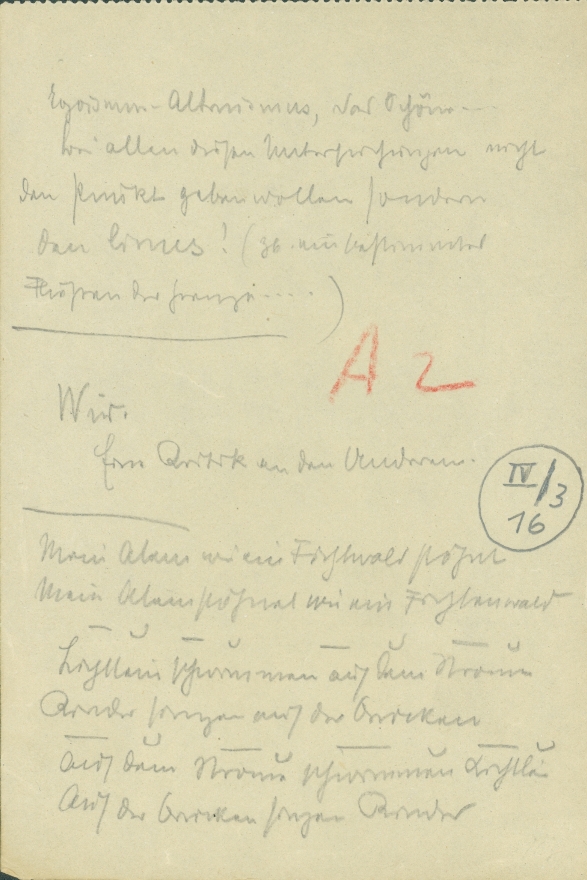 Egoismus-Altruismus, das Schöne....
bei allen diesen Untersuchungen nicht
den Punkt geben wollen sondern
den Limes! (zb. ein bestimmtes
der Grenze.....)
A 2
Wir.
Eine Kritik an den Anderen.
IV/3
16
Mein Atem wie ein Fichtwald stöhnt
Mein Atem stöhnet wie ein Fichtenwald
Lichtlein schwimmen auf dem Strome
Kinder singen auf der Brücken
Auf dem Strome schwimmen Lichtlein
Auf der Brücken singen Kinder